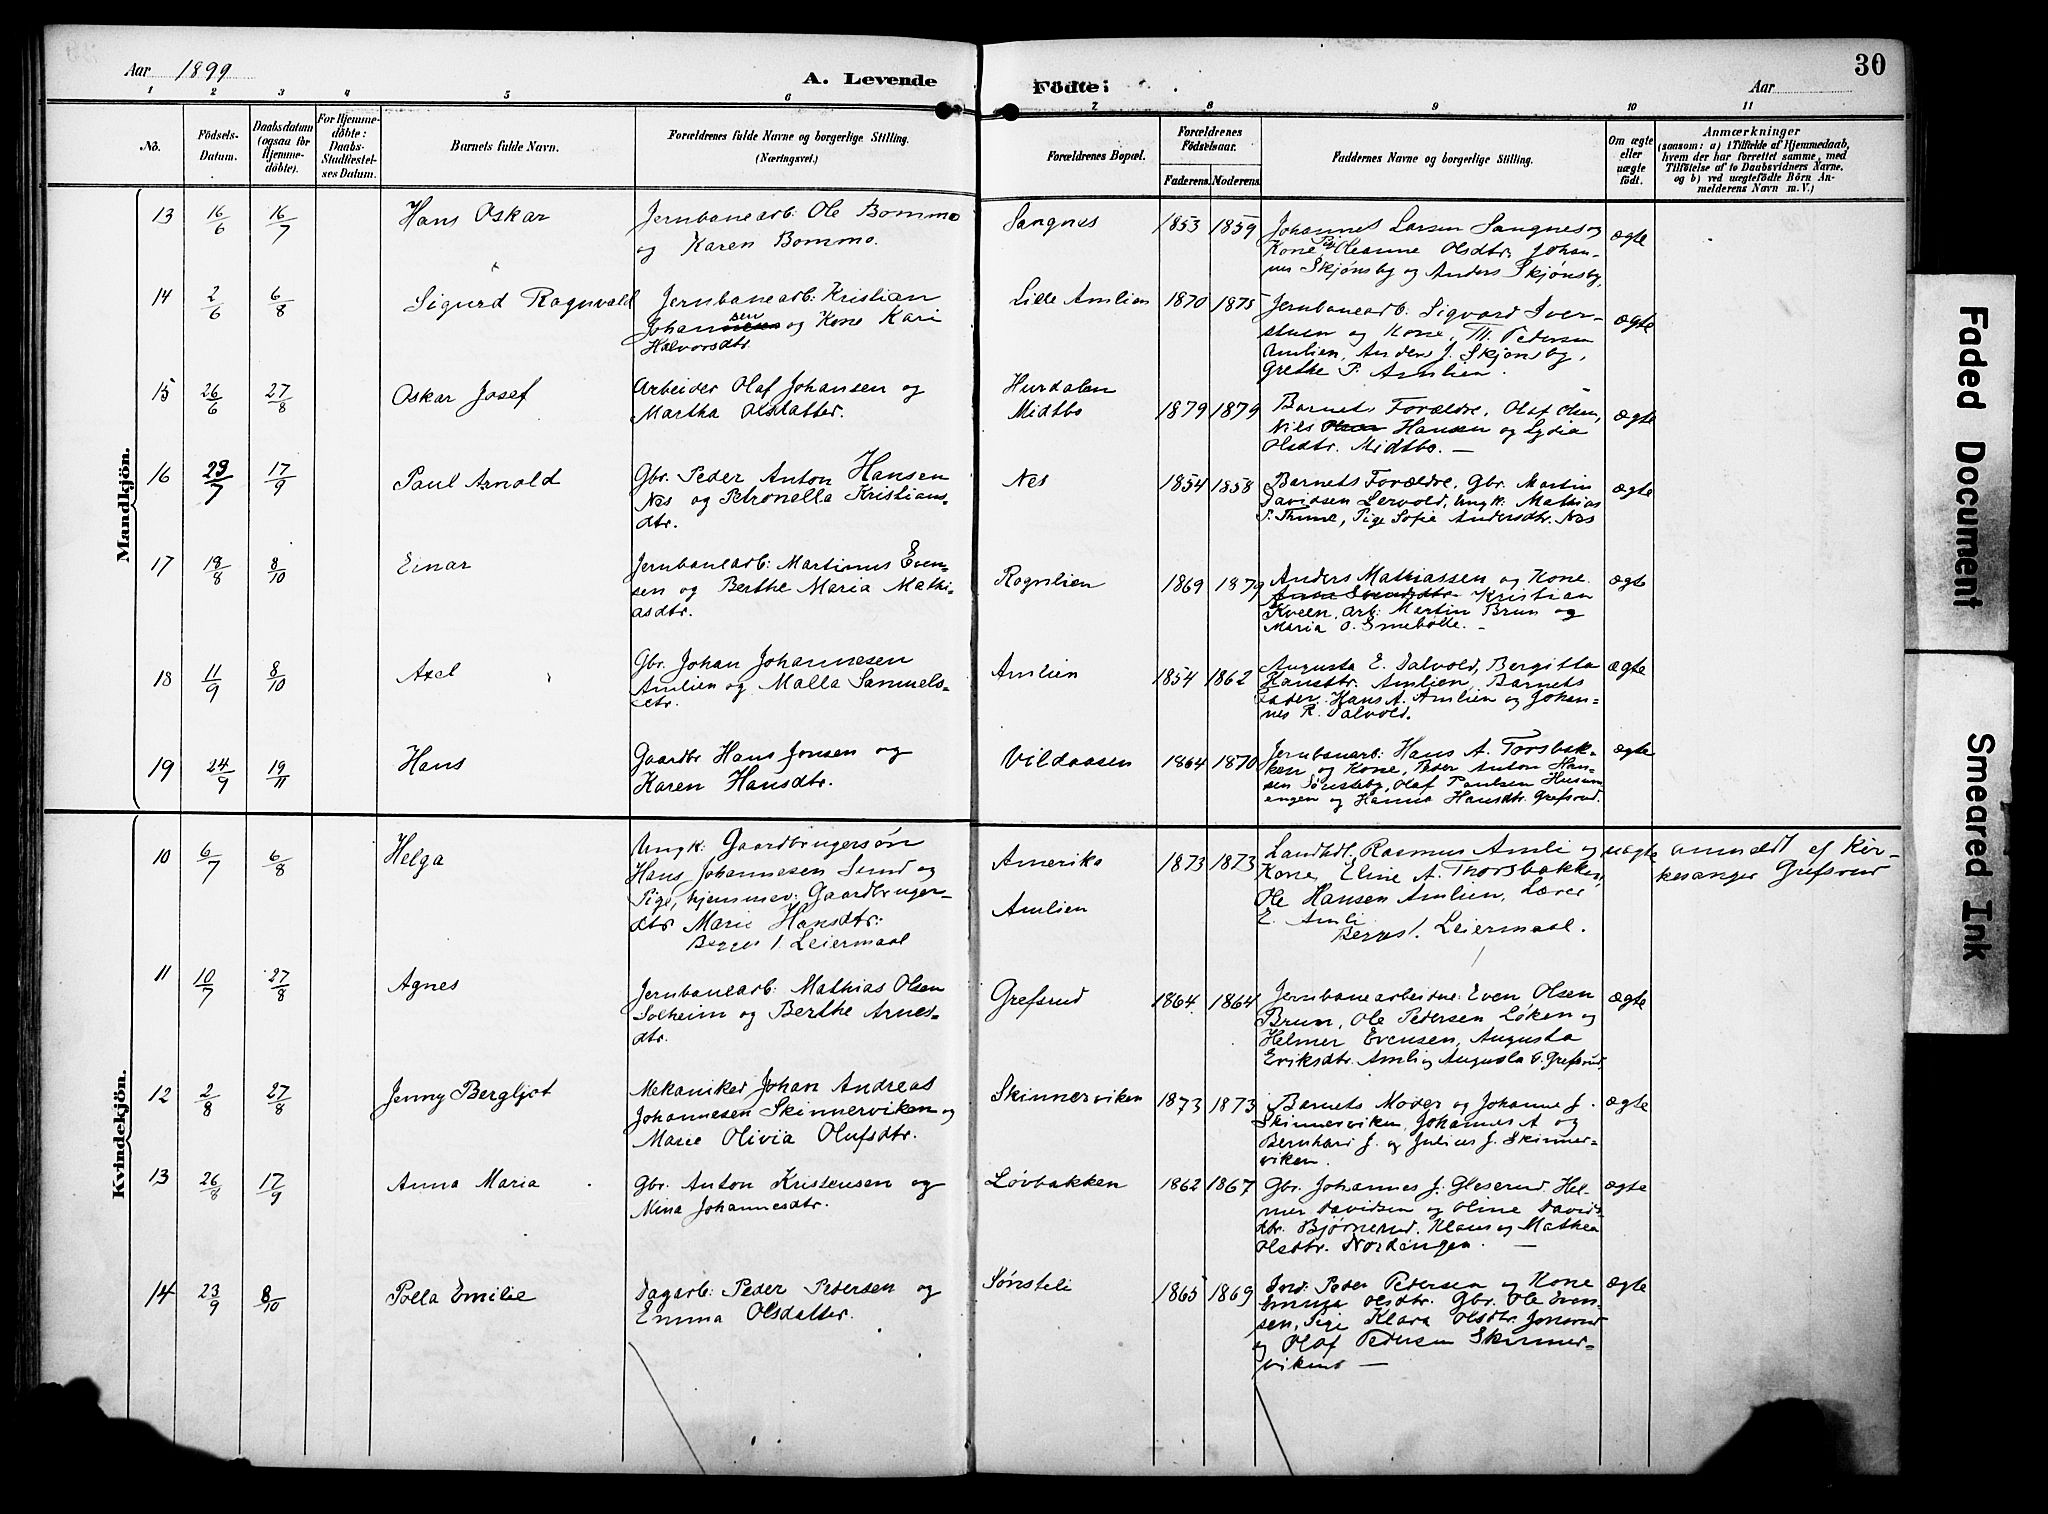 Aar 1899
A. Levende
Födte:
Aar
30
1 2 3 4 5 6 7 8 9 10 11
No.
Födsels-
Datum.
Daabsdatum
(ogsaa for
Hjemme-
döbte).
For Hjemme-
döbte:
Daabs-
Stadfestel-
ses Datum.
Barnets fulde Navn.
Forældrenes fulde Navne og borgerlige Stilling.
(Næringsvei.)
Forældrenes Bopæl.
Forældrenes
Födselsaar.
Faderens. Moderens.
Faddernes Navne og borgerlige Stilling.
Om ægte
eller
uægte
födt.
Anmærkninger
(saasom: a) i Tilfælde af Hjemmedaab,
hvem der har forrettet samme, med
Tilföielse af to Daabsvidners Navne.
og b) ved uægtefödte Börn An-
melderens Navn m. V.)
Mandkjön.
13 16/6 16/7 Hans Oskar
Jernbanearb: Ole Bommo
og Karen Bommo.
Sangnes 1853 1859
Johannes Larsen Sangnes og
Kone Oleanne Olsdtr. Johan-
nes Skjønsby og Anders Skjønsby,
ægte
14 2/6 6/8 Sigurd Ragnvald
Jernbanearb: Kristian
Johansen og Kone Kari
Halvorsdtr.
Lille Amlien 1870 1875
Jernbanearb. Sigvard Iver-
stuen og Kone, Th. Pedersen
Amlien, Anders J. Skjønsby,
Grethe P. Amlien.
ægte
15 26/6 27/8 Oskar Josef
Arbeider Olaf Johansen og
Martha Olsdatter.
Hurdalen
Midtbo 1879 1879
Barnets Forældre, Olaf Olsen,
Nils Hansen og Lydia
Olsdtr. Midtbo. —
ægte
16 29/7 17/9 Paul Arnold
Gbr. Peder Anton Hansen
Nes og Petronella Kristians-
dtr.
Nes 1854 1858
Barnets Forældre, Gbr. Martin
Davidsen Lervold, Ungk. Mathias
P. Thune, Pige Sofie Andersdtr. Nes
ægte
17 18/8 8/10 Einar
Jernbanearb: Martinus Even-
sen og Berthe Maria Mathi-
asdtr.
Rognlien 1869 1879
Anders Mathiassen og Kone
Anna Svendsdtr. Kristian
Kveen, arb: Martin Brun og
Maria O. Enebølle. -
ægte
18 11/9 8/10 Axel
Gbr. Johan Johannesen
Amlien og Malla Samuels-
dtr.
Amlien 1854 1862
Augusta E. Dalvold, Bergitta
Hansdtr. Amlien, Barnets
Fader, Hans A. Amlien og Johan-
nes R. Dalvold.
ægte
19 24/9 19/11 Hans
Gaardbr Hans Jonsen og
Karen Hansdtr.
Vildaasen 1864 1870
Jernbanearb: Hans A. Torsbak-
ken og Kone, Peder Anton Han-
sen Sønsteby, Olaf Paulsen Husum-
engen og Hanna Hansdtr. Grefsrud.
ægte
Kvindekjön.
10 6/7 6/8 Helga
Ungk: Gaardbrugersøn
Hans Johannesen Sund og
Pige, hjemmev: Gaardbruger-
dtr Marie Hansdtr:
Begges 1. Leiermaal
Amerika
Amlien
1873 1873
Landhdl. Rasmus Amli og
Kone Eline A. Thorsbakken,
Ole Hansen Amlien, Lærer
E. Amli
Begges 1. Leiermaal.
uægte
anmeldt af Kir-
kesanger Grefsrud
11 10/7 27/8 Agnes
Jernbanearb: Mathias Olsen
Solheim og Berthe Arnes-
dtr.
Grefsrud 1864. 1864
Jernbanearbeidne: Even Olsen
Brun, Ole Pedersen Løken og
Helmer Evensen, Augusta
Eriksdtr. Amli og Augusta O. Grefsrud
ægte
12 2/8 27/8 Jenny Bergljot
Mekaniker Johan Andreas
Johannesen Skinnerviken og
Marie Olivia Olufsdtr.
Skinnerviken 1873 1873
Barnets Moder og Johanne J.
Skinnerviken, Johannes A og
Bernhard J. og Julius J. Skinner-
viken.
ægte
13 26/8 17/9 Anna Maria
Gbr. Anton Kristensen og
Mina Johannesdtr.
Løvbakken 1862 1867
Gbr. Johannes J. Gleserud. Hel-
mer Davidsen og Oline Davids-
dtr. Bjørnerud. Klaus og Mathea
Olsdtr. Nordengen. —
ægte
14 23/9 8/10 Polla Emilie
Dagarb: Peder Pedersen og
Emma Olsdatter.
Sønsteli 1865 1869
Ind: Peder Pedersen og Kone
Emma Olsdtr. Gbr. Ole Even-
sen, Pige Klara Olsdtr. Jonsrud
og Olaf Pedersen Skinner-
viken —
ægte
Faded Document
Smeared Ink